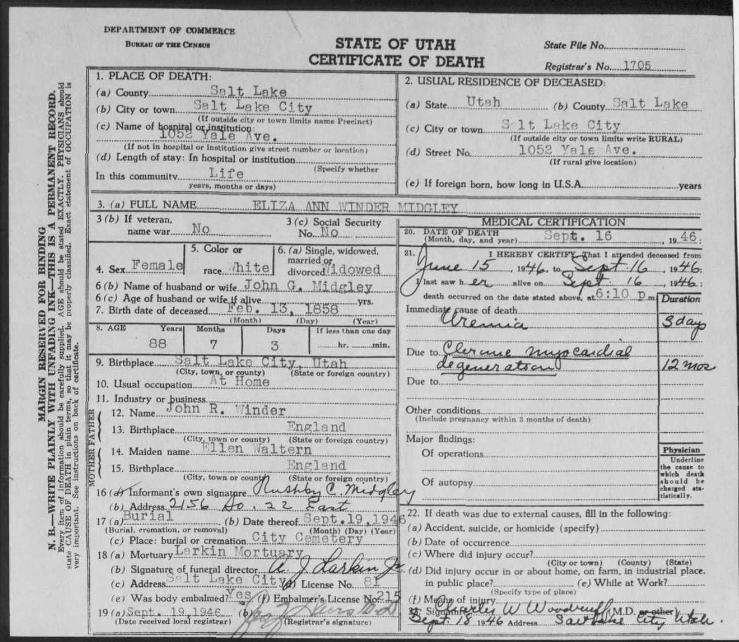 DEPARTMENT OF COMMERCE
BUREAU OF THE CENSUS
STATE OF UTAH
CERTIFICATE OF DEATH
State File No.
Registrar's No. 1705
MARGIN RESERVED FOR BINDING
N. B.—WRITE PLAINLY WITH UNFADING INK—THIS IS A PERMANENT RECORD.
Every item of information should be carefully supplied. AGE should be stated EXACTLY. PHYSICIANS should
state CAUSE OF DEATH in plain terms, so that it may be properly classified. Exact statement of OCCUPATION is
very important. See instructions on back of certificate.
1. PLACE OF DEATH:
(a) County Salt Lake
(b) City or town Salt Lake City
(If outside city or town limits name Precinct)
(c) Name of hospital or institution:
1052 Yale Ave.
(If not in hospital or institution give street number or location)
(d) Length of stay: In hospital or institution
(Specify whether
In this community Life
years, months or days)
2. USUAL RESIDENCE OF DECEASED:
(a) State Utah (b) County Salt Lake
(c) City or town Salt Lake City
(If outside city or town limits write RURAL)
(d) Street No. 1052 Yale Ave.
(If rural give location)
(e) If foreign born, how long in U.S.A. years
3. (a) FULL NAME ELIZA ANN WINDER MIDGLEY
3 (b) If veteran, name war No
3 (c) Social Security No. No
4. Sex Female
5. Color or race White
6. (a) Single, widowed, married or divorced Widowed
6 (b) Name of husband or wife John G. Midgley
6 (c) Age of husband or wife if alive yrs.
7. Birth date of deceased Feb. 13, 1858
(Month) (Day) (Year)
8. AGE Years Months Days If less than one day
88 7 3 hr. min.
9. Birthplace Salt Lake City, Utah
(City, town, or county) (State or foreign country)
10. Usual occupation At Home
11. Industry or business
FATHER
12. Name John R. Winder
13. Birthplace England
(City, town or county) (State or foreign country)
MOTHER
14. Maiden name Ellen Waltern
15. Birthplace England
(City, town or county) (State or foreign country)
16 (a) Informant's own signature Rushby C. Midgley
(b) Address 2156 So. 22 East
17 (a) Burial (b) Date thereof Sept. 19, 1946
(Burial, cremation, or removal) (Month) (Day) (Year)
(c) Place: burial or cremation City Cemetery
18 (a) Mortuary Larkin Mortuary
(b) Signature of funeral director A. J. Larkin Jr
(c) Address Salt Lake City (d) License No. 81
(e) Was body embalmed? Yes (f) Embalmer's License No. 215
19 (a) Sept. 19, 1946 (b)
(Date received local registrar) (Registrar's signature)
MEDICAL CERTIFICATION
20. DATE OF DEATH
(Month, day, and year) Sept. 16, 1946
21. I HEREBY CERTIFY, That I attended deceased from
June 15, 1946, to Sept 16 1946
I last saw her alive on Sept. 16, 1946
death occurred on the date stated above, at 6:10 p m
Duration
Immediate cause of death
Uremia 3 days
Due to Chronic myocardial
degeneration 12 mos
Due to
Other conditions
(Include pregnancy within 3 months of death)
Major findings:
Of operations
Of autopsy
Physician
Underline
the cause to
which death
should be
charged sta-
tistically.
22. If death was due to external causes, fill in the following:
(a) Accident, suicide, or homicide (specify)
(b) Date of occurrence
(c) Where did injury occur?
(City or town) (County) (State)
(d) Did injury occur in or about home, on farm, in industrial place,
in public place? (e) While at Work?
(Specify type of place)
(f) Means of injury
23. Signature Charles W Woodruff (M.D. or other)
Sept. 18 1946 Address Salt Lake City Utah.